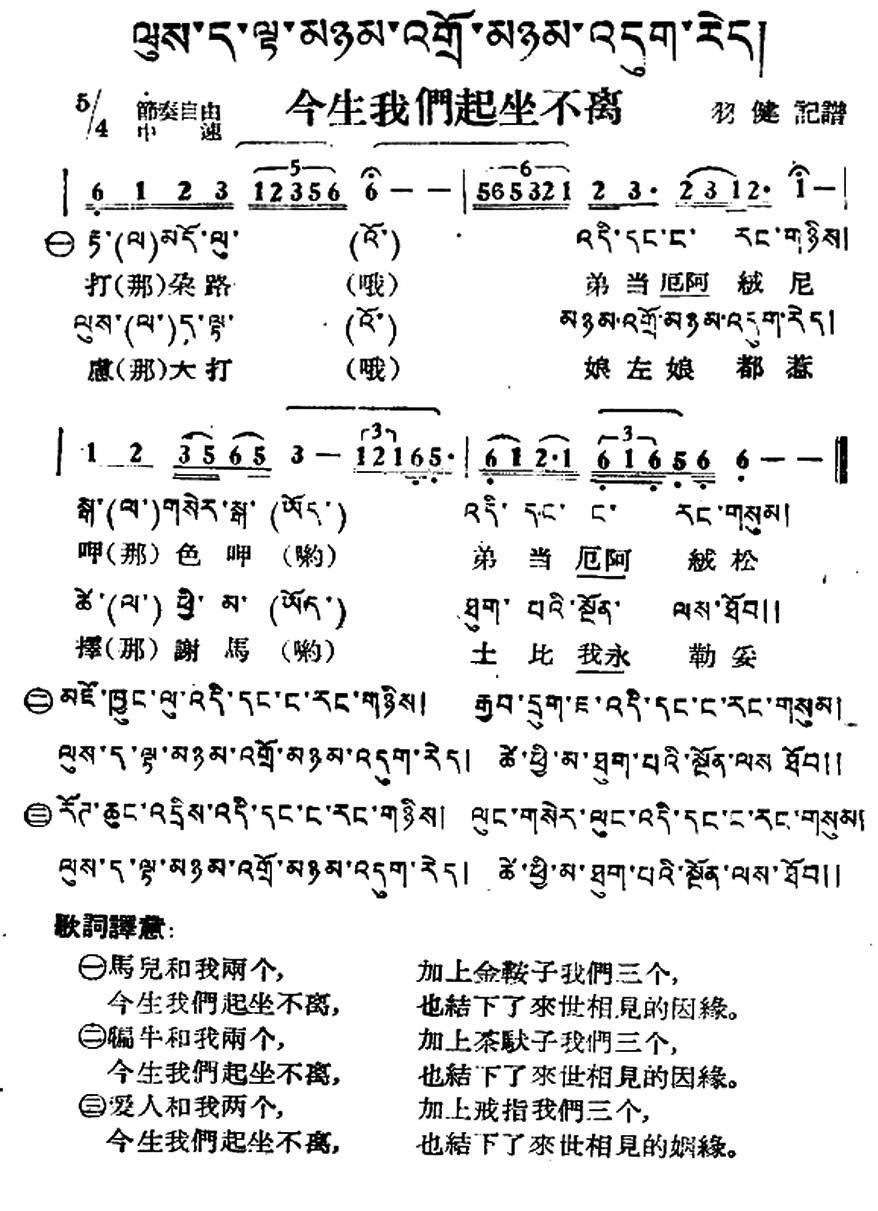 ལུས་ད་ལྟ་མཉམ་འགྲོ་མཉམ་འདུག་རེད།
5/4 節奏自由 中速 今生我們起坐不离 羽健記譜
6 1 2 3 12356 6 — — | 565321 2 3· 2312· 1 — |
㊀ རྟ་(ལ)མདོ་ལུ་ (འོ་) འདི་དང་ང་ རང་གཉིས།
打(那)朶路 (哦) 弟當厄阿絨尼
ལུས་(ལ་)ད་ལྟ་ (འོ་) མཉམ་འགྲོ་མཉམ་འདུག་རེད།
慮(那)大打 (哦) 娘左娘都惹
| 1 2 35 65 3 — 12165· | 61 2·1 616 56 6 — —
སྒ་(ལ་)གསེར་སྒ་ (ཨོད་) འདི་ དང་ ང་ རང་གསུམ།
呷(那)色呷 (喲) 弟當厄阿絨松
ཚེ་(ལ་) ཕྱི་ མ་ (ཨོད་) ཐུག་ པའི་སྔོན་ ལས་ཐོབ།།
擇(那)謝馬 (喲) 土比我永勒妥
㊁ མཛོ་ཁྱུང་ལུ་འདི་དང་ང་རང་གཉིས། རྒྱབ་དྲུག་ཇ་འདི་དང་ང་རང་གསུམ།
ལུས་ད་ལྟ་མཉམ་འགྲོ་མཉམ་འདུག་རེད། ཚེ་ཕྱི་མ་ཐུག་པའི་སྔོན་ལས་ཐོབ།།
㊂ རོཊ་ཆུང་འདྲིས་འདི་དང་ང་རང་གཉིས། ལུང་གསེར་ལུང་འདི་དང་ང་རང་གསུམ།
ལུས་ད་ལྟ་མཉམ་འགྲོ་མཉམ་འདུག་རེད། ཚེ་ཕྱི་མ་ཐུག་པའི་སྔོན་ལས་ཐོབ།།
歌詞譯意:
㊀馬兒和我兩个, 加上金鞍子我們三个,
今生我們起坐不离, 也結下了來世相見的因緣。
㊁犏牛和我兩个, 加上茶馱子我們三个,
今生我們起坐不离, 也結下了來世相見的因緣。
㊂愛人和我两个, 加上戒指我們三个,
今生我們起坐不离, 也結下了來世相見的姻緣。